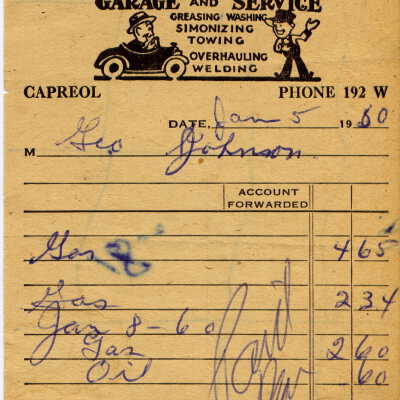 GARAGE AND SERVICE
GREASING WASHING
SIMONIZING
TOWING
OVERHAULING
WELDING
CAPREOL PHONE 192 W
DATE, Jan 5 1960
M Geo Johnson
ACCOUNT
FORWARDED
Gas 4 65
Gas 2 34
Jan 8-60
Gas 2 60
Oil 60
Paid